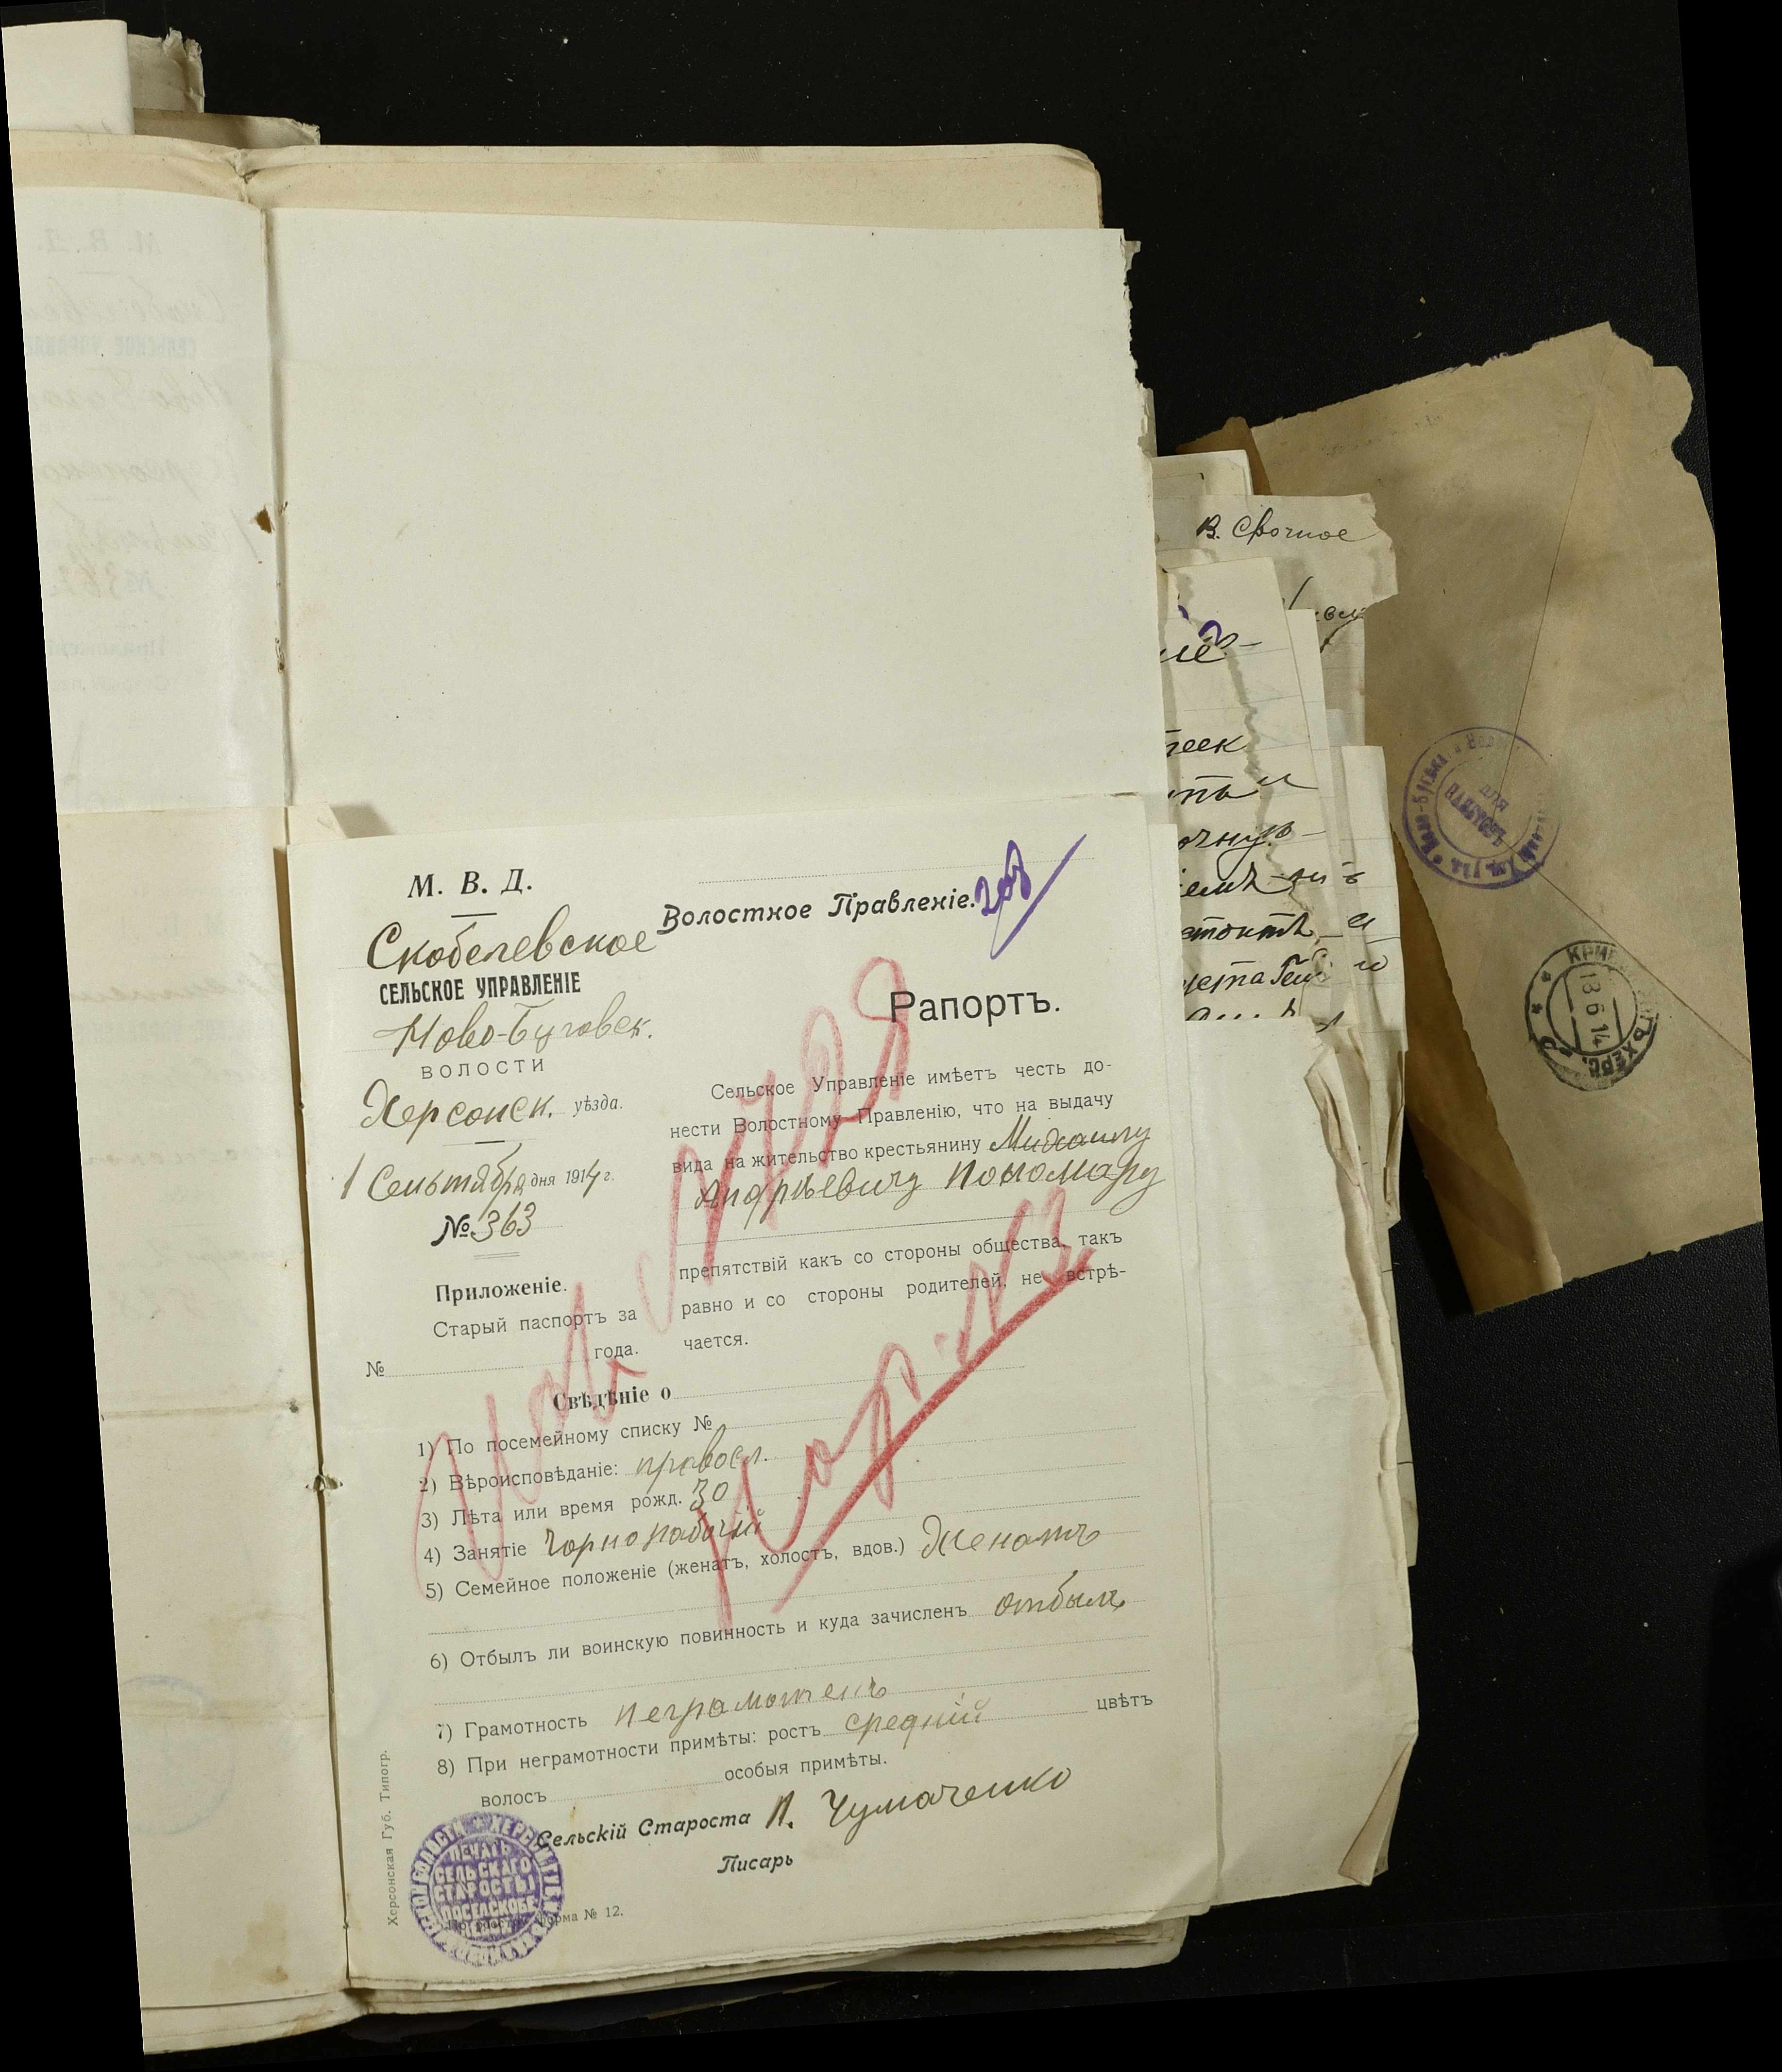 М. В. Д.
Скобелевское
СЕЛЬСКОЕ УПРАВЛЕНІЕ
Ново-Буговск.
ВОЛОСТИ
Херсонск. уѣзда.
1 Сентября дня 1914 г.
№ 363
Приложеніе.
Старый паспортъ за
№ года.
Волостное Правленіе.
Рапортъ.
Сельское Управленіе имѣетъ честь до-
нести Волостному Правленію, что на выдачу
вида на жительство крестьянину Михаилу
Андрѣевичу Пономарю
препятствій какъ со стороны общества, такъ
равно и со стороны родителей, не встрѣ-
чается.
Свѣдѣніе о
1) По посемейному списку №
2) Вѣроисповѣданіе: правосл.
3) Лѣта или время рожд. 30
4) Занятіе Чорнорабочій
5) Семейное положеніе (женатъ, холостъ, вдов.) Женатъ
6) Отбылъ ли воинскую повинность и куда зачисленъ отбылъ
7) Грамотность неграмотенъ
8) При неграмотности примѣты: ростъ средній цвѣтъ
волосъ особыя примѣты.
Сельскій Староста П. Чумаченко
Писарь
ПЕЧАТЬ
СЕЛЬСКАГО
СТАРОСТЫ
Форма № 12.
Херсонская Губ. Типогр.
В. Срочное
ДЛЯ
ПАКЕТОВЪ
13 6 14